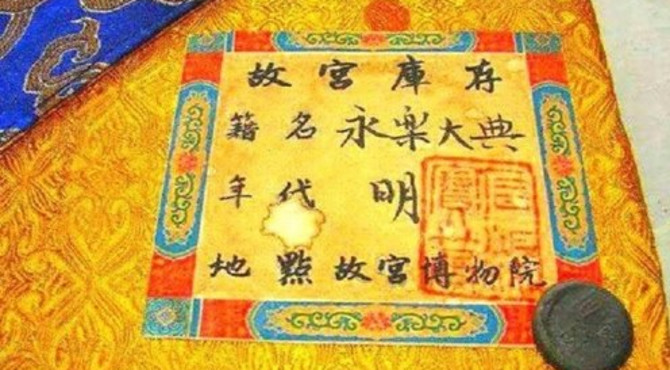 故宮庫存
籍名永楽大典
年代明
地點故宮博物院